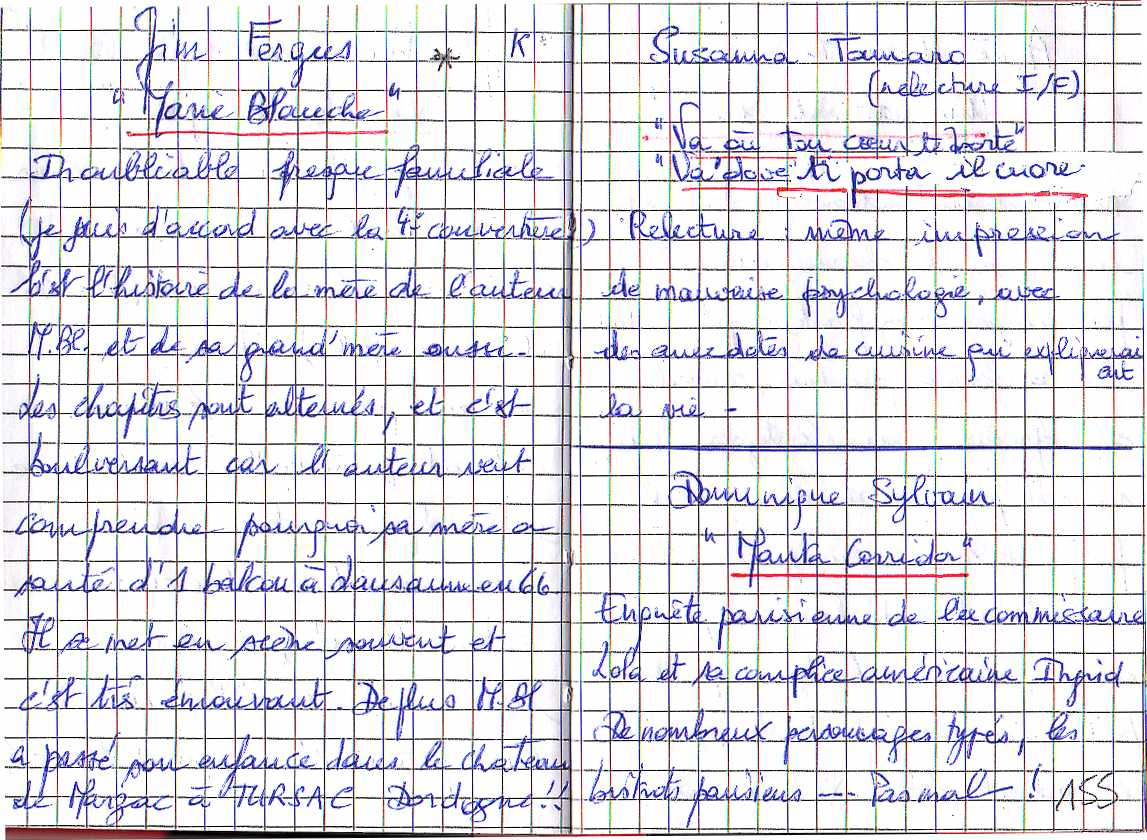 Jim Fergus * K
"Marie Blanche"
Inoubliable fresque familiale
(je suis d'accord avec la 4e couverture)
C'est l'histoire de la mère de l'auteur
M.Bl. et de sa grand'mère aussi.
Les chapitres sont alternés, et c'est
boulversant car l'auteur veut
comprendre pourquoi sa mère a
sauté d'1 balcon à Lausanne en 66
Il se met en scène souvent et
c'est très émouvant. De plus M.Bl
a passé son enfance dans le château
de Marzac à TURSAC Dordogne!!
Susanna Tamaro
(relecture I/F)
"Va où ton cœur te porte"
"Va' dove ti porta il cuore
Relecture : même impression
de mauvaise psychologie, avec
des anecdotes de cuisine qui expliquerai
ent
la vie -
Dominique Sylvain
"Manta Corridor"
Enquête parisienne de l'ex commissaire
Lola et sa complice américaine Ingrid
De nombreux personnages typés, les
bistrots parisiens --- Pas mal !
155